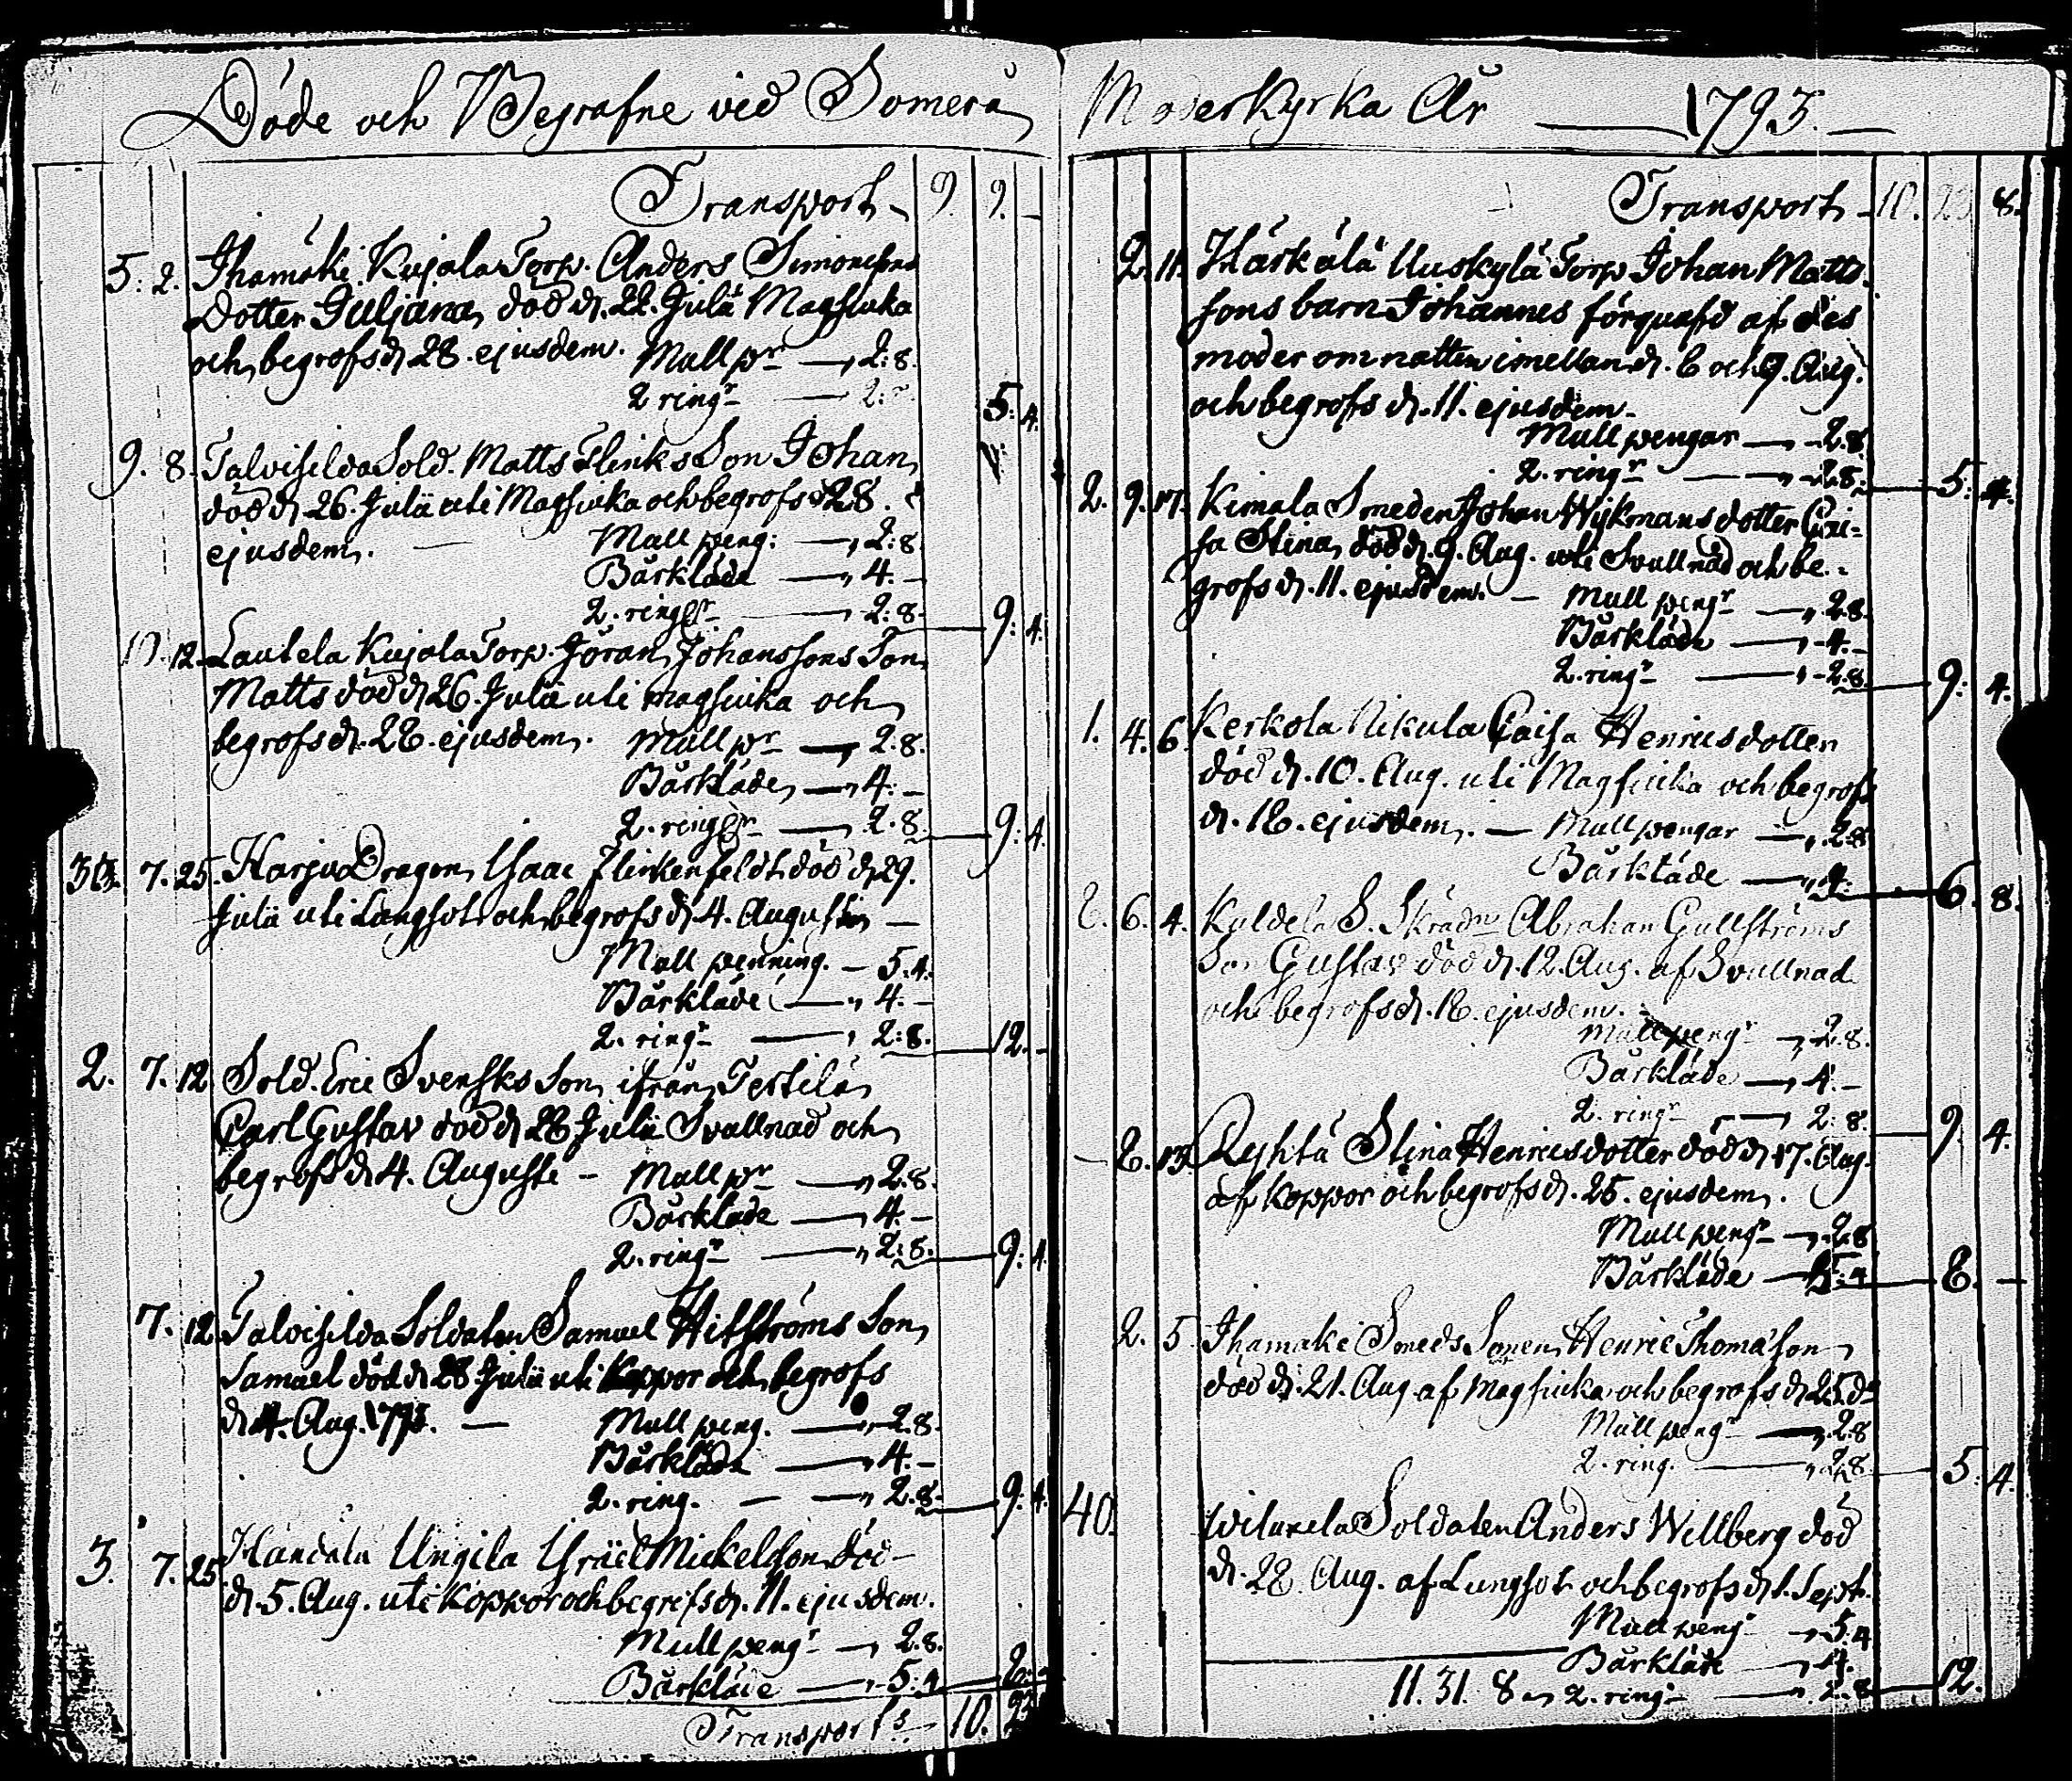 Döde och Begrafne vid Somero
Transport 9. 9. —
5. 2. Ihamäki Kujala Torp. Anders Simonssons
Dotter Juljana, död d. 22. Julii Magsiuka
och begrofs d. 28. ejusdem. Mull pr — 2:8.
2 ringr — 2:
5: 4.
9. 8. Talvisilda Sold. Matts Flinks Son Johan
död d. 26. Julii uti Magsiuka och begrofs d. 28.
ejusdem. — Mull peng: — 2:8.
Bårkläde — 4. —
2. ringr — 2:8. 9: 4.
12. Lautela Kujala Torp. Jöran Johanssons Son
Matts död d. 26. Julii uti magsiuka och
begrofs d. 28. ejusdem. Mull pr — 2.8.
Bårkläde — 4. —
2. ringr — 2.8. 9: 4.
7. 25. Harju Dragon Isaac Flinkenfeldt död d. 29.
Julii uti Lungsot och begrofs d. 4. Augusti —
Mull penning. — 5.4.
Bårkläde — 4. —
2. ringr — 2:8. 12. —
2. 7. 12 Sold. Eric Svensks Son ifrån Terttilä
Carl Gustav död d. 28 Julii Svullnad och
begrofs d. 4. Augusti — Mull pr — 2.8.
Bårkläde — 4. —
2. ringr — 2:8. 9: 4.
7. 12. Talvisilda Soldaten Samuel Hitströms Son
Samuel död d. 28 Julii uti Koppor och begrofs
d. 4. Aug. 1793. — Mull peng. — 2.8.
Bårkläde — 4. —
2. ring. — 2.8. 9: 4.
3. 7. 25 Handala Ungila Israel Mickelsson död
d. 5. Aug. uti Koppor och begrofs d. 11. ejusdem.
Mull pengr — 2.8.
Bårkläde — 5:4
Transport 10.
Moderkyrka År — 1793. —
Transport — 10. 8.
2. 11. Härkälä Uuskylä Torp Johan Matts
sons barn Johannes förquafd af des
moder om natten imellan d. 6 och 7. Aug.
och begrofs d. 11. ejusdem.
Mull pengar — 2.8.
2. ringr — 2.8. 5: 4.
2. 9. 17. Kimala Smeden Johan Wijkmans dotter Cai-
sa Stina död d. 9. Aug. uti Svullnad och be-
grofs d. 11. ejusdem. — Mull pengr — 2.8.
Bårkläde — 4. —
2. ringr — 2.8. 9: 4.
1. 4. 6. Kerkola Nikula Caisa Henricsdotter
död d. 10. Aug. uti Magsiuka och begrofs
d. 18. ejusdem. — Mull pengar — 2.8
Bårkläde — 4: 6. 8.
6. 4. S. Skräd Abraham Gullströms
Son Gustav död d. 12. Aug. af Svullnad
och begrofs d. 18. ejusdem.
Mull pengr — 2.8.
Bårkläde — 4. —
2. ringr — 2:8. 9. 4.
Stina Henricsdotter död d. 17. Aug.
af Koppor och begrofs d. 25. ejusdem.
Mull pengr — 2.8
Bårkläde — 5:4 8. —
2. 5 Ihamäki Smeds Sonen Henric Thomasson
död d. 21. Aug. af magsiuka och begrofs d. 25. do
Mull pengr — 2.8
2. ring. — 2.8 5: 4.
40. Soldaten Anders Willberg död
d. 28. Aug. af Lungsot och begrofs d. 1. Sept.
Mull peng — 5.4
Bårkläde — 4.
11. 31. 8 2. ringr — 2.8 12.